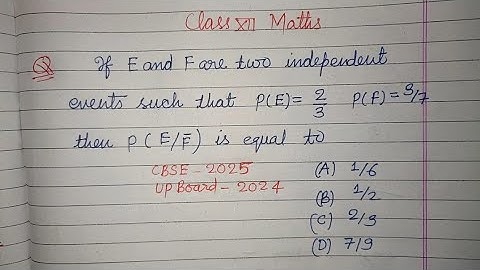 Class XII Maths
Q If E and F are two independent
events such that P(E) = 2/3 P(F) = 3/7
then P(E/F̄) is equal to
CBSE - 2025
UP Board - 2024
(A) 1/6
(B) 1/2
(C) 2/3
(D) 7/9